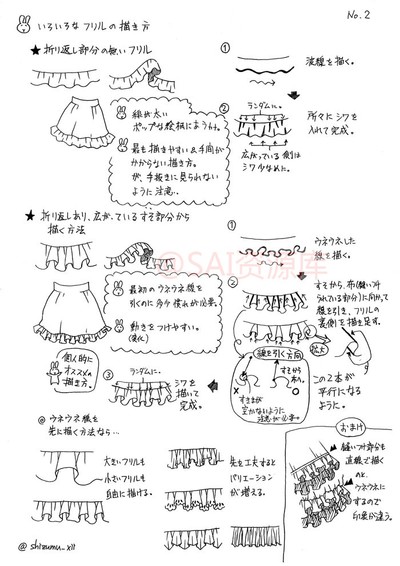 いろいろなフリルの描き方
No.2
★ 折り返し部分の無いフリル
線が太い
ポップな絵柄にまうみ。
最も描きやすい&手間が
かからない描き方。
が、手抜きに見られない
ように注意。
①
波線を描く。
②
ランダムに。
所々にシワを
入れて完成。
広がっている側は
シワ少なめに。
★ 折り返しあり、広がっているすそ部分から
描く方法
最初のウネウネ線を
引くのに多少慣れが必要。
動きをつけやすい。
個人的に
オススメの
描き方。
①
ウネウネした
線を描く。
②
すそから、布(縫いつけ
られている部分)に向けて
線を引き、フリルの
裏側を描き足す。
拡大
線を引く方向
すそから
布へ。
×
○
すき間が
空かないように
注意が必要。
この2本が
平行になる
ように。
③
ランダムに。
シワを
描いて
完成。
@SAI资源库
◎ ウネウネ線を
先に描く方法なら…
大きいフリルも
小さいフリルも
自由に描ける。
先を工夫すると
バリエーション
が増える。
おまけ
縫いつけ部分も
直線で描く
のと、
ウネウネに
するので
印象が違う。
@shizumu_xii